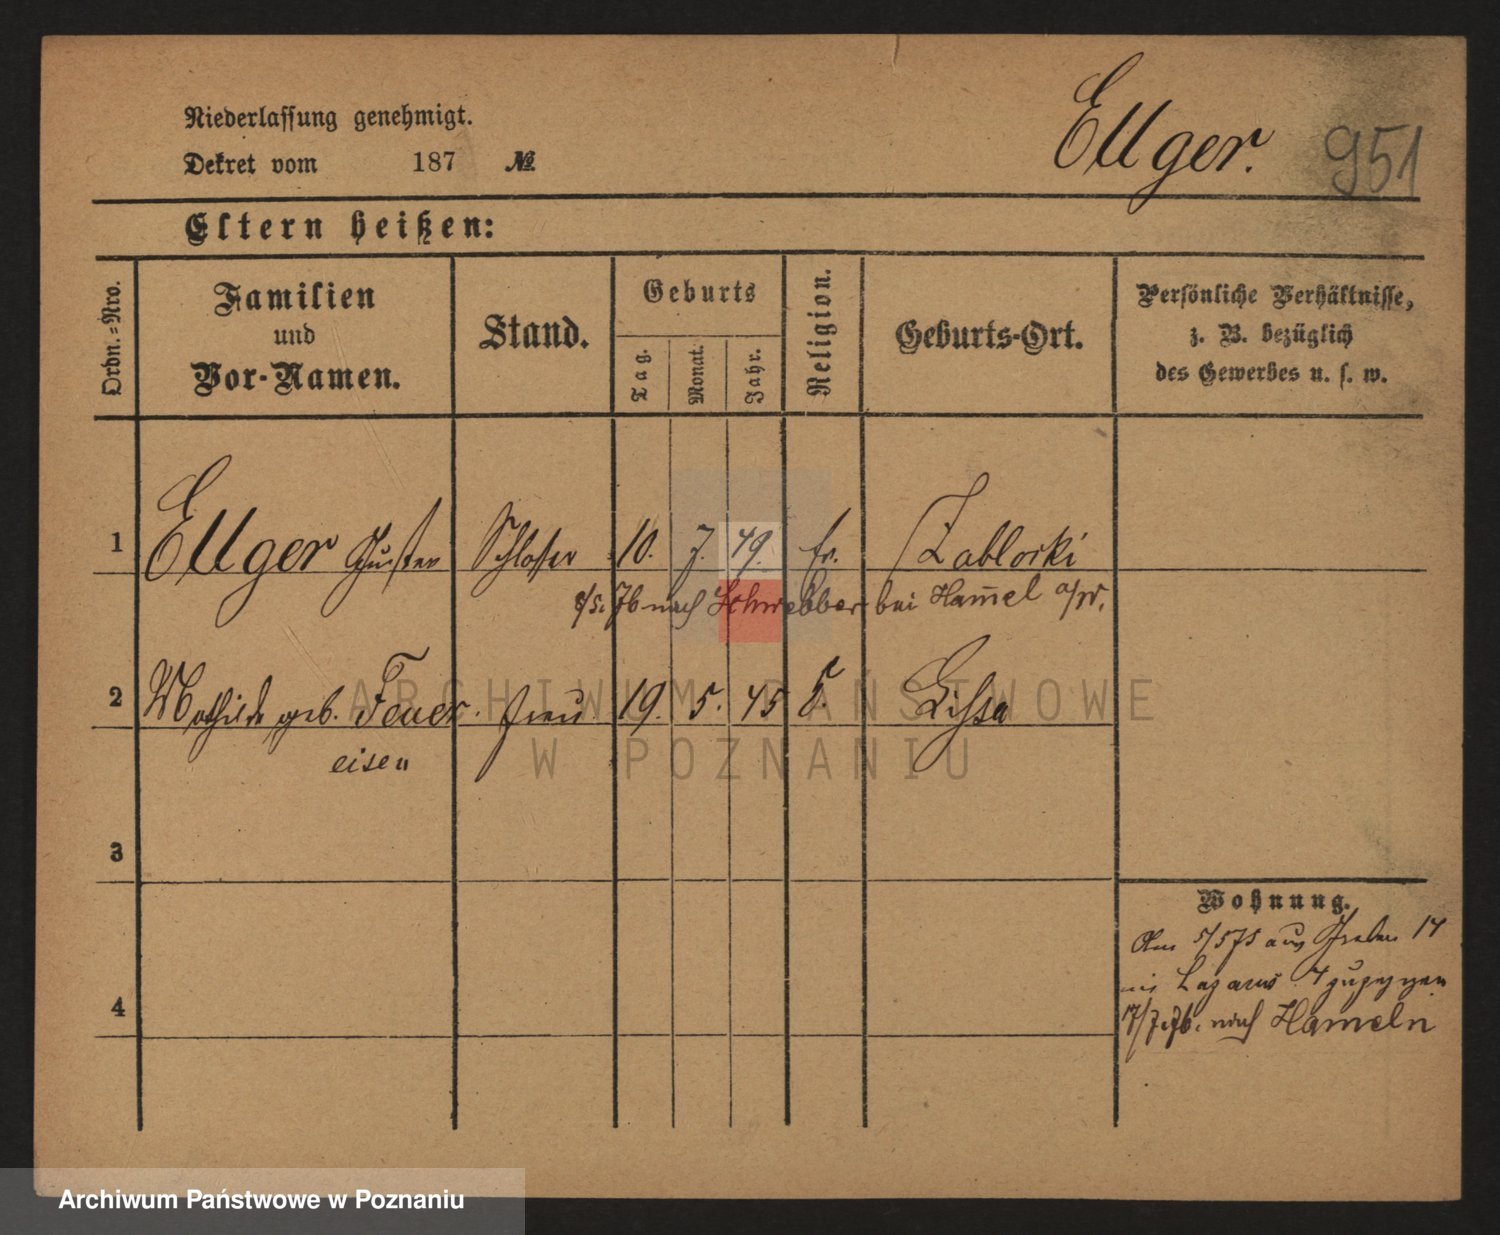 Niederlassung genehmigt.
Dekret vom 187 №
Ellger. 951
Eltern heißen:
Ordn.=Nro.
Familien
und
Vor-Namen.
Stand.
Geburts
Tag.
Monat.
Jahr.
Religion.
Geburts-Ort.
Persönliche Verhältnisse,
z. B. bezüglich
des Gewerbes u. s. w.
1 Ellger Gustav Schlosser 10. 7. 49. Zablocki
nach Schwebber bei Hamel a/W.
2 Mathilde geb. Feuer Frau 19. 5. 45 Lissa
eisen
3
4
Wohnung.
5/5 75 aus Graben 17
Lazarus zugezogen
17/7. 76. nach Hameln
ARCHIWUM PAŃSTWOWE
W POZNANIU
Archiwum Państwowe w Poznaniu